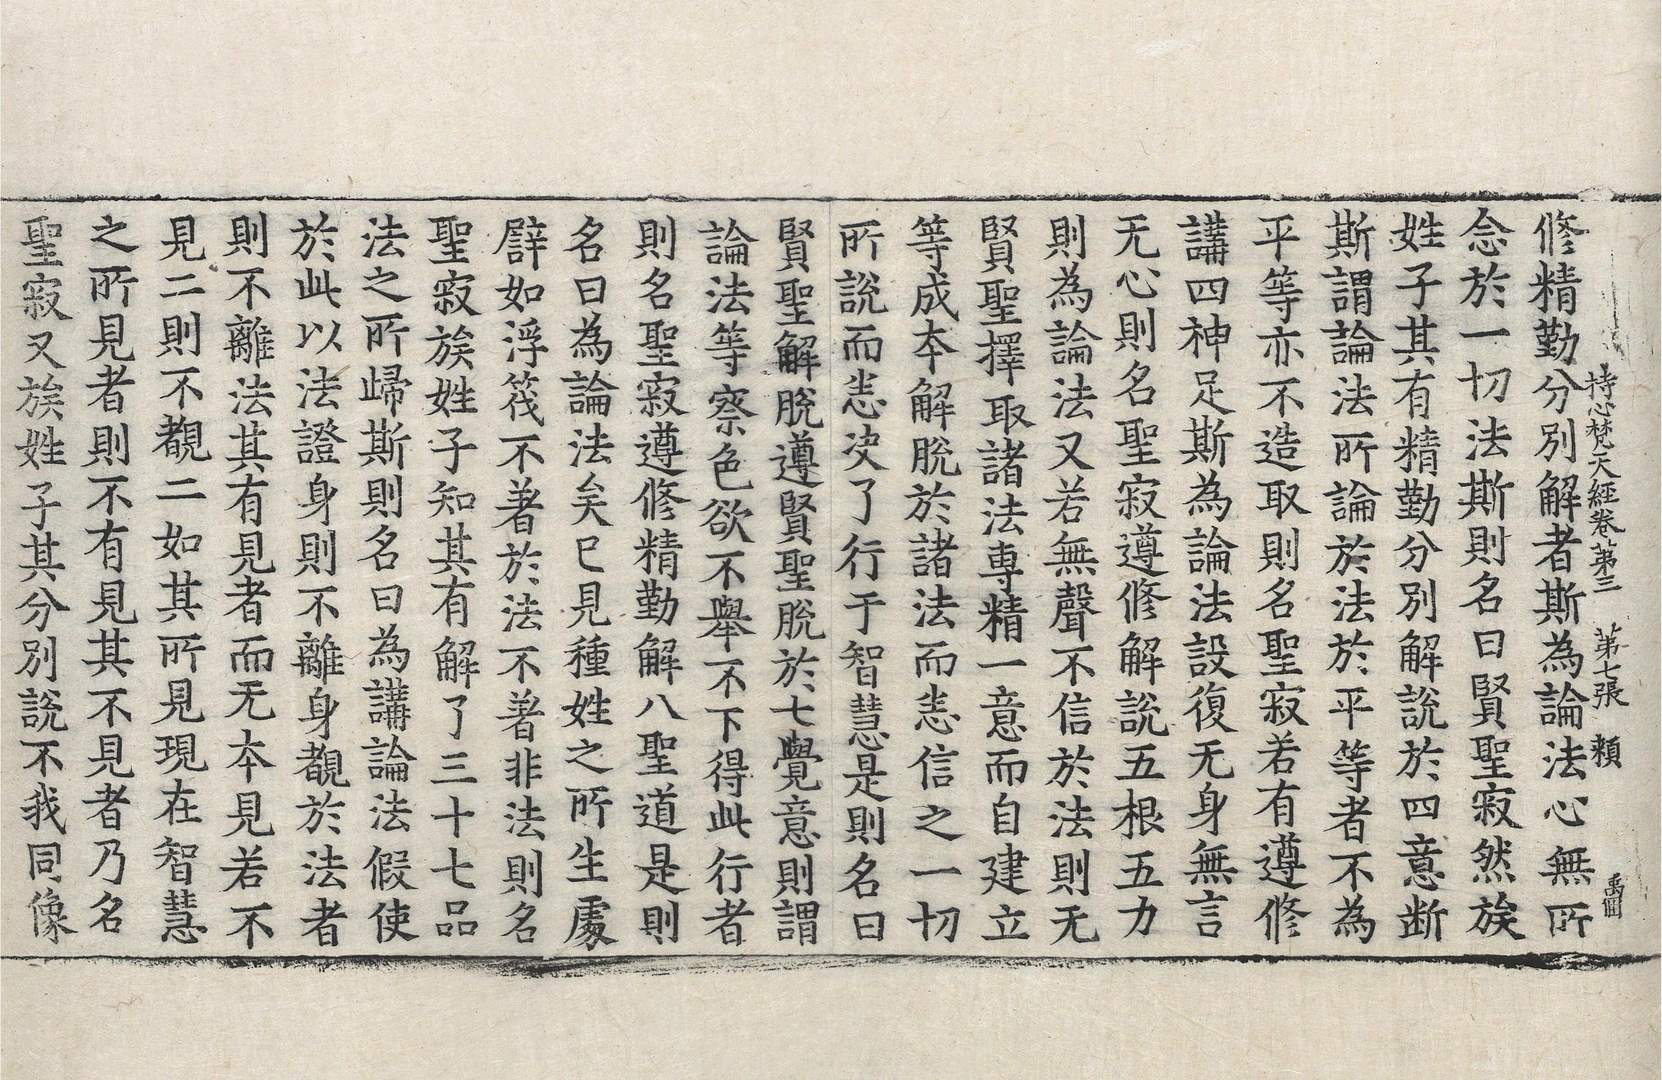 持心梵天經卷第三　第七張　頼
禹囬
修精勤分別解者斯為論法心無所
念於一切法斯則名曰賢聖寂然族
姓子其有精勤分別解說於四意斷
斯謂論法所論於法於平等者不為
平等亦不造取則名聖寂若有遵修
講四神足斯為論法設復无身無言
无心則名聖寂遵修解說五根五力
則為論法又若無聲不信於法則无
賢聖擇取諸法專精一意而自建立
等成夲解脫於諸法而恙信之一切
所說而恙决了行于智慧是則名曰
賢聖解脫遵賢聖脫於七覺意則謂
論法等察色欲不舉不下得此行者
則名聖寂遵修精勤解八聖道是則
名曰為論法矣已見種姓之所生處
辟如浮筏不著於法不著非法則名
聖寂族姓子知其有解了三十七品
法之所歸斯則名曰為講論法假使
於此以法證身則不離身覩於法者
則不離法其有見者而无夲見若不
見二則不覩二如其所見現在智慧
之所見者則不有見其不見者乃名
聖寂又族姓子其分別說不我同像